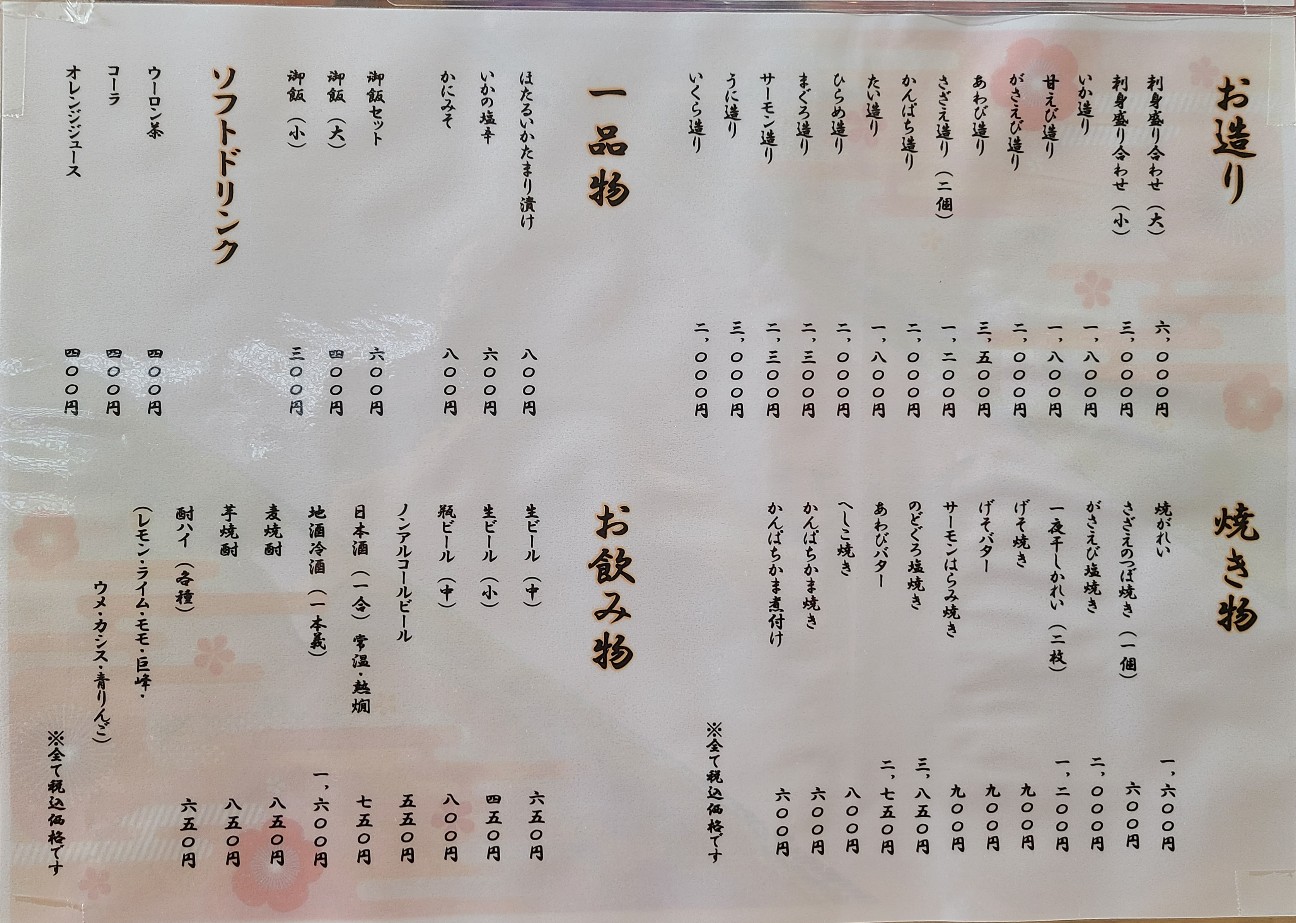 お造り
刺身盛り合わせ（大） 六,〇〇〇円
刺身盛り合わせ（小） 三,〇〇〇円
いか造り 一,八〇〇円
甘えび造り 一,八〇〇円
がさえび造り 二,〇〇〇円
あわび造り 三,五〇〇円
さざえ造り（二個） 一,二〇〇円
かんぱち造り 二,〇〇〇円
たい造り 一,八〇〇円
ひらめ造り 二,〇〇〇円
まぐろ造り 二,三〇〇円
サーモン造り 二,三〇〇円
うに造り 三,〇〇〇円
いくら造り 二,〇〇〇円
焼き物
焼がれい 一,六〇〇円
さざえのつぼ焼き（一個） 六〇〇円
がさえび塩焼き 二,〇〇〇円
一夜干しかれい（二枚） 一,二〇〇円
げそ焼き 九〇〇円
げそバター 九〇〇円
サーモンはらみ焼き 九〇〇円
のどぐろ塩焼き 三,八五〇円
あわびバター 二,七五〇円
へしこ焼き 八〇〇円
かんぱちかま焼き 六〇〇円
かんぱちかま煮付け 六〇〇円
※全て税込価格です
一品物
ほたるいかたまり漬け 八〇〇円
いかの塩辛 六〇〇円
かにみそ 八〇〇円
御飯セット 六〇〇円
御飯（大） 四〇〇円
御飯（小） 三〇〇円
ソフトドリンク
ウーロン茶 四〇〇円
コーラ 四〇〇円
オレンジジュース 四〇〇円
お飲み物
生ビール（中） 六五〇円
生ビール（小） 四五〇円
瓶ビール（中） 八〇〇円
ノンアルコールビール 五五〇円
日本酒（一合）常温・熱燗 七五〇円
地酒冷酒（一本義） 一,六〇〇円
麦焼酎 八五〇円
芋焼酎 八五〇円
酎ハイ（各種） 六五〇円
（レモン・ライム・モモ・巨峰・
ウメ・カシス・青りんご）
※全て税込価格です